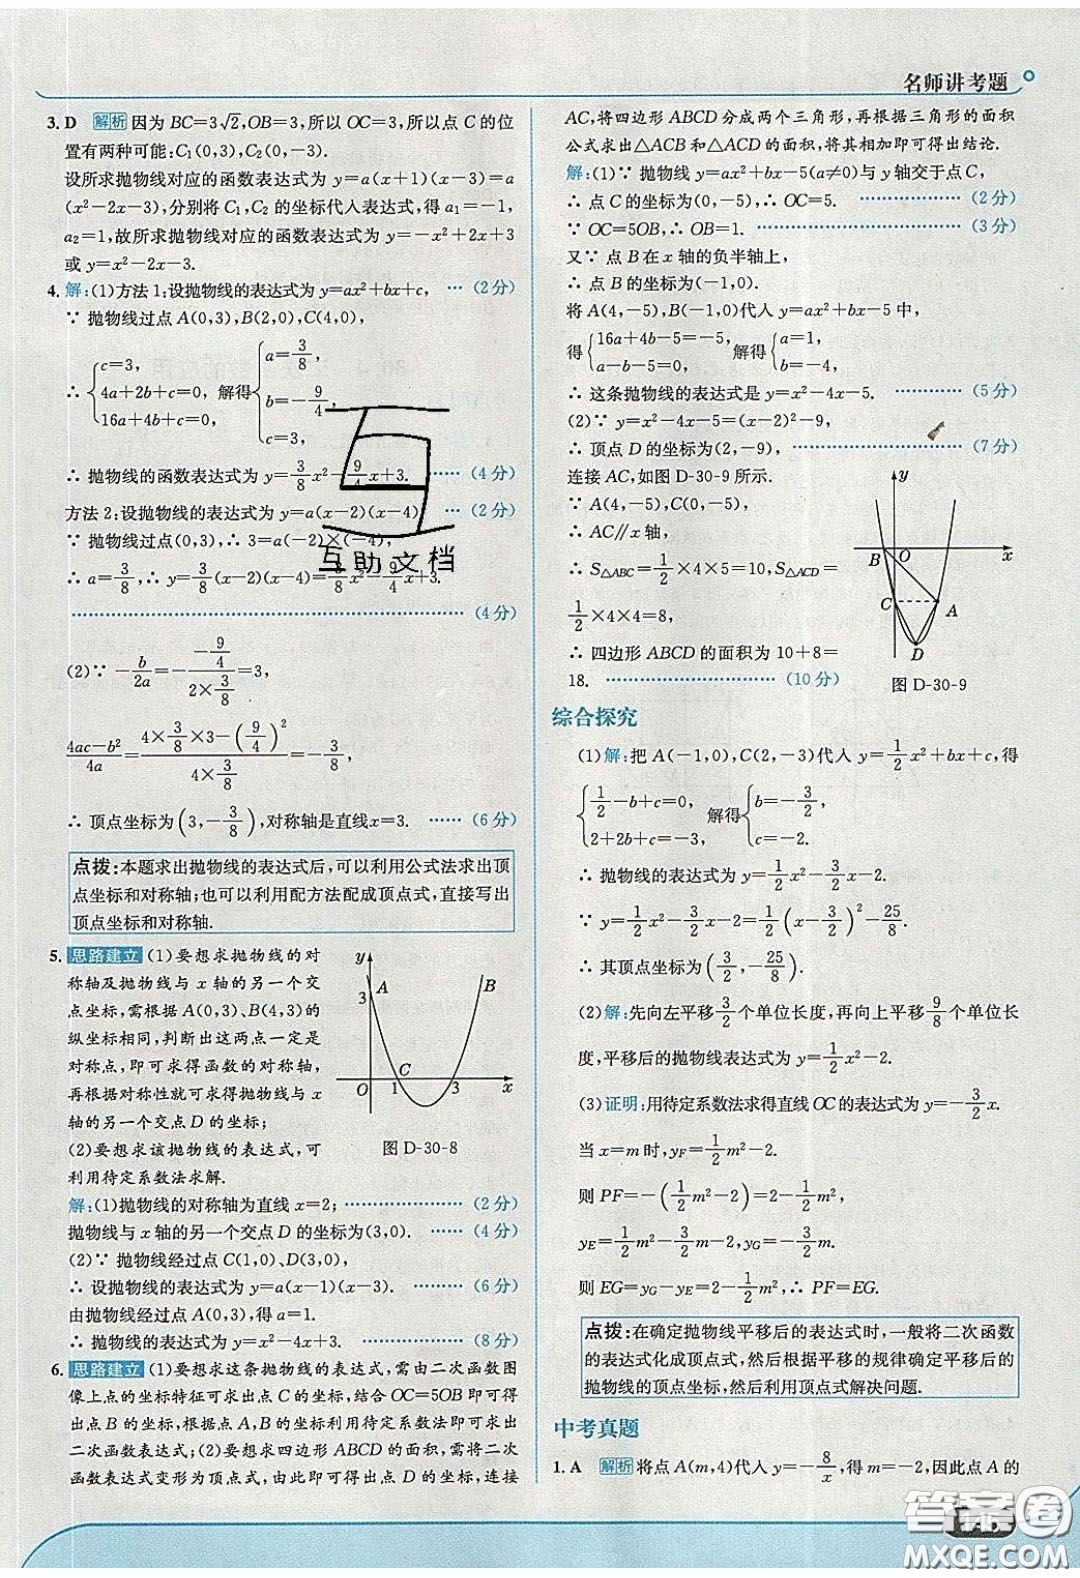 名师讲考题
3. D 解析 因为 BC=3√2,OB=3,所以 OC=3,所以点 C 的位
置有两种可能:C₁(0,3),C₂(0,-3).
设所求抛物线对应的函数表达式为 y=a(x+1)(x-3)=a
(x²-2x-3),分别将 C₁,C₂ 的坐标代入表达式,得 a₁=-1,
a₂=1,故所求抛物线对应的函数表达式为 y=-x²+2x+3
或 y=x²-2x-3.
4. 解:(1)方法 1:设抛物线的表达式为 y=ax²+bx+c, … (2分)
∵ 抛物线过点 A(0,3),B(2,0),C(4,0),
∴ {c=3, 4a+2b+c=0, 16a+4b+c=0, 解得 {a=3/8, b=-9/4, c=3,
∴ 抛物线的函数表达式为 y=3/8x²-9/4x+3. …… (4分)
方法 2:设抛物线的表达式为 y=a(x-2)(x-4) … (2分)
∵ 抛物线过点(0,3),∴ 3=a(-2)×(-4),
∴ a=3/8,∴ y=3/8(x-2)(x-4)=3/8x²-9/4x+3.
…… (4分)
(2)∵ -b/2a=-(-9/4)/(2×3/8)=3,
(4ac-b²)/4a=(4×3/8×3-(9/4)²)/(4×3/8)=-3/8,
∴ 顶点坐标为(3,-3/8),对称轴是直线x=3. …… (6分)
点拨:本题求出抛物线的表达式后,可以利用公式法求出顶
点坐标和对称轴;也可以利用配方法配成顶点式,直接写出
顶点坐标和对称轴.
5. 思路建立 (1)要想求抛物线的对
称轴及抛物线与 x 轴的另一个交
点坐标,需根据 A(0,3),B(4,3)的
纵坐标相同,判断出这两点一定是
对称点,即可求得函数的对称轴,
再根据对称性就可求得抛物线与 x
轴的另一个交点 D 的坐标;
(2)要想求该抛物线的表达式,可
利用待定系数法求解.
y
A
B
3
C
O
1
3
x
图 D-30-8
解:(1)抛物线的对称轴为直线 x=2; …… (2分)
抛物线与 x 轴的另一个交点 D 的坐标为(3,0). …… (4分)
(2)∵ 抛物线经过点 C(1,0),D(3,0),
∴ 设抛物线的表达式为 y=a(x-1)(x-3). …… (6分)
由抛物线经过点 A(0,3),得 a=1.
∴ 抛物线的表达式为 y=x²-4x+3. …… (8分)
6. 思路建立 (1)要想求这条抛物线的表达式,需由二次函数图
像上点的坐标特征可求出点 C 的坐标,结合 OC=5OB 即可得
出点 B 的坐标,根据点 A,B 的坐标利用待定系数法即可求出
二次函数表达式;(2)要想求四边形 ABCD 的面积,需将二次
函数表达式变形为顶点式,由此即可得出点 D 的坐标,连接
AC,将四边形 ABCD 分成两个三角形,再根据三角形的面积
公式求出△ACB 和△ACD 的面积,将其相加即可得出结论.
解:(1)∵ 抛物线 y=ax²+bx-5(a≠0)与 y轴交于点 C,
∴ 点 C 的坐标为(0,-5),∴ OC=5. …… (2分)
∵ OC=5OB,∴ OB=1. …… (3分)
又∵ 点 B 在 x 轴的负半轴上,
∴ 点 B 的坐标为(-1,0).
将 A(4,-5),B(-1,0)代入 y=ax²+bx-5 中,
得 {16a+4b-5=-5, a-b-5=0, 解得 {a=1, b=-4,
∴ 这条抛物线的表达式是 y=x²-4x-5. …… (5分)
(2)∵ y=x²-4x-5=(x-2)²-9,
∴ 顶点 D 的坐标为(2,-9), …… (7分)
连接 AC,如图 D-30-9 所示.
∵ A(4,-5),C(0,-5),
∴ AC∥x 轴,
∴ S△ABC=1/2×4×5=10,S△ACD=
1/2×4×4=8,
∴ 四边形 ABCD 的面积为 10+8=
18. …… (10分)
y
B
O
x
C
A
D
图 D-30-9
综合探究
(1)解:把 A(-1,0),C(2,-3)代入 y=1/2x²+bx+c,得
{1/2-b+c=0, 2+2b+c=-3, 解得 {b=-3/2, c=-2.
∴ 抛物线的表达式为 y=1/2x²-3/2x-2.
∵ y=1/2x²-3/2x-2=1/2(x-3/2)²-25/8.
∴ 其顶点坐标为(3/2,-25/8).
(2)解:先向左平移3/2个单位长度,再向上平移9/8个单位长
度,平移后的抛物线表达式为 y=1/2x²-2.
(3)证明:用待定系数法求得直线 OC 的表达式为 y=-3/2x.
当 x=m 时,yF=1/2m²-2.
则 PF=-(1/2m²-2)=2-1/2m².
yE=1/2m²-3/2m-2,yG=-3/2m.
则 EG=yG-yE=2-1/2m²,∴ PF=EG.
点拨:在确定抛物线平移后的表达式时,一般将二次函数
的表达式化成顶点式,然后根据平移的规律确定平移后的
抛物线的顶点坐标,然后利用顶点式解决问题.
中考真题
1. A 解析 将点 A(m,4)代入 y=-8/x,得 m=-2,因此点 A 的
互助文档
答案圈
MXQE.COM